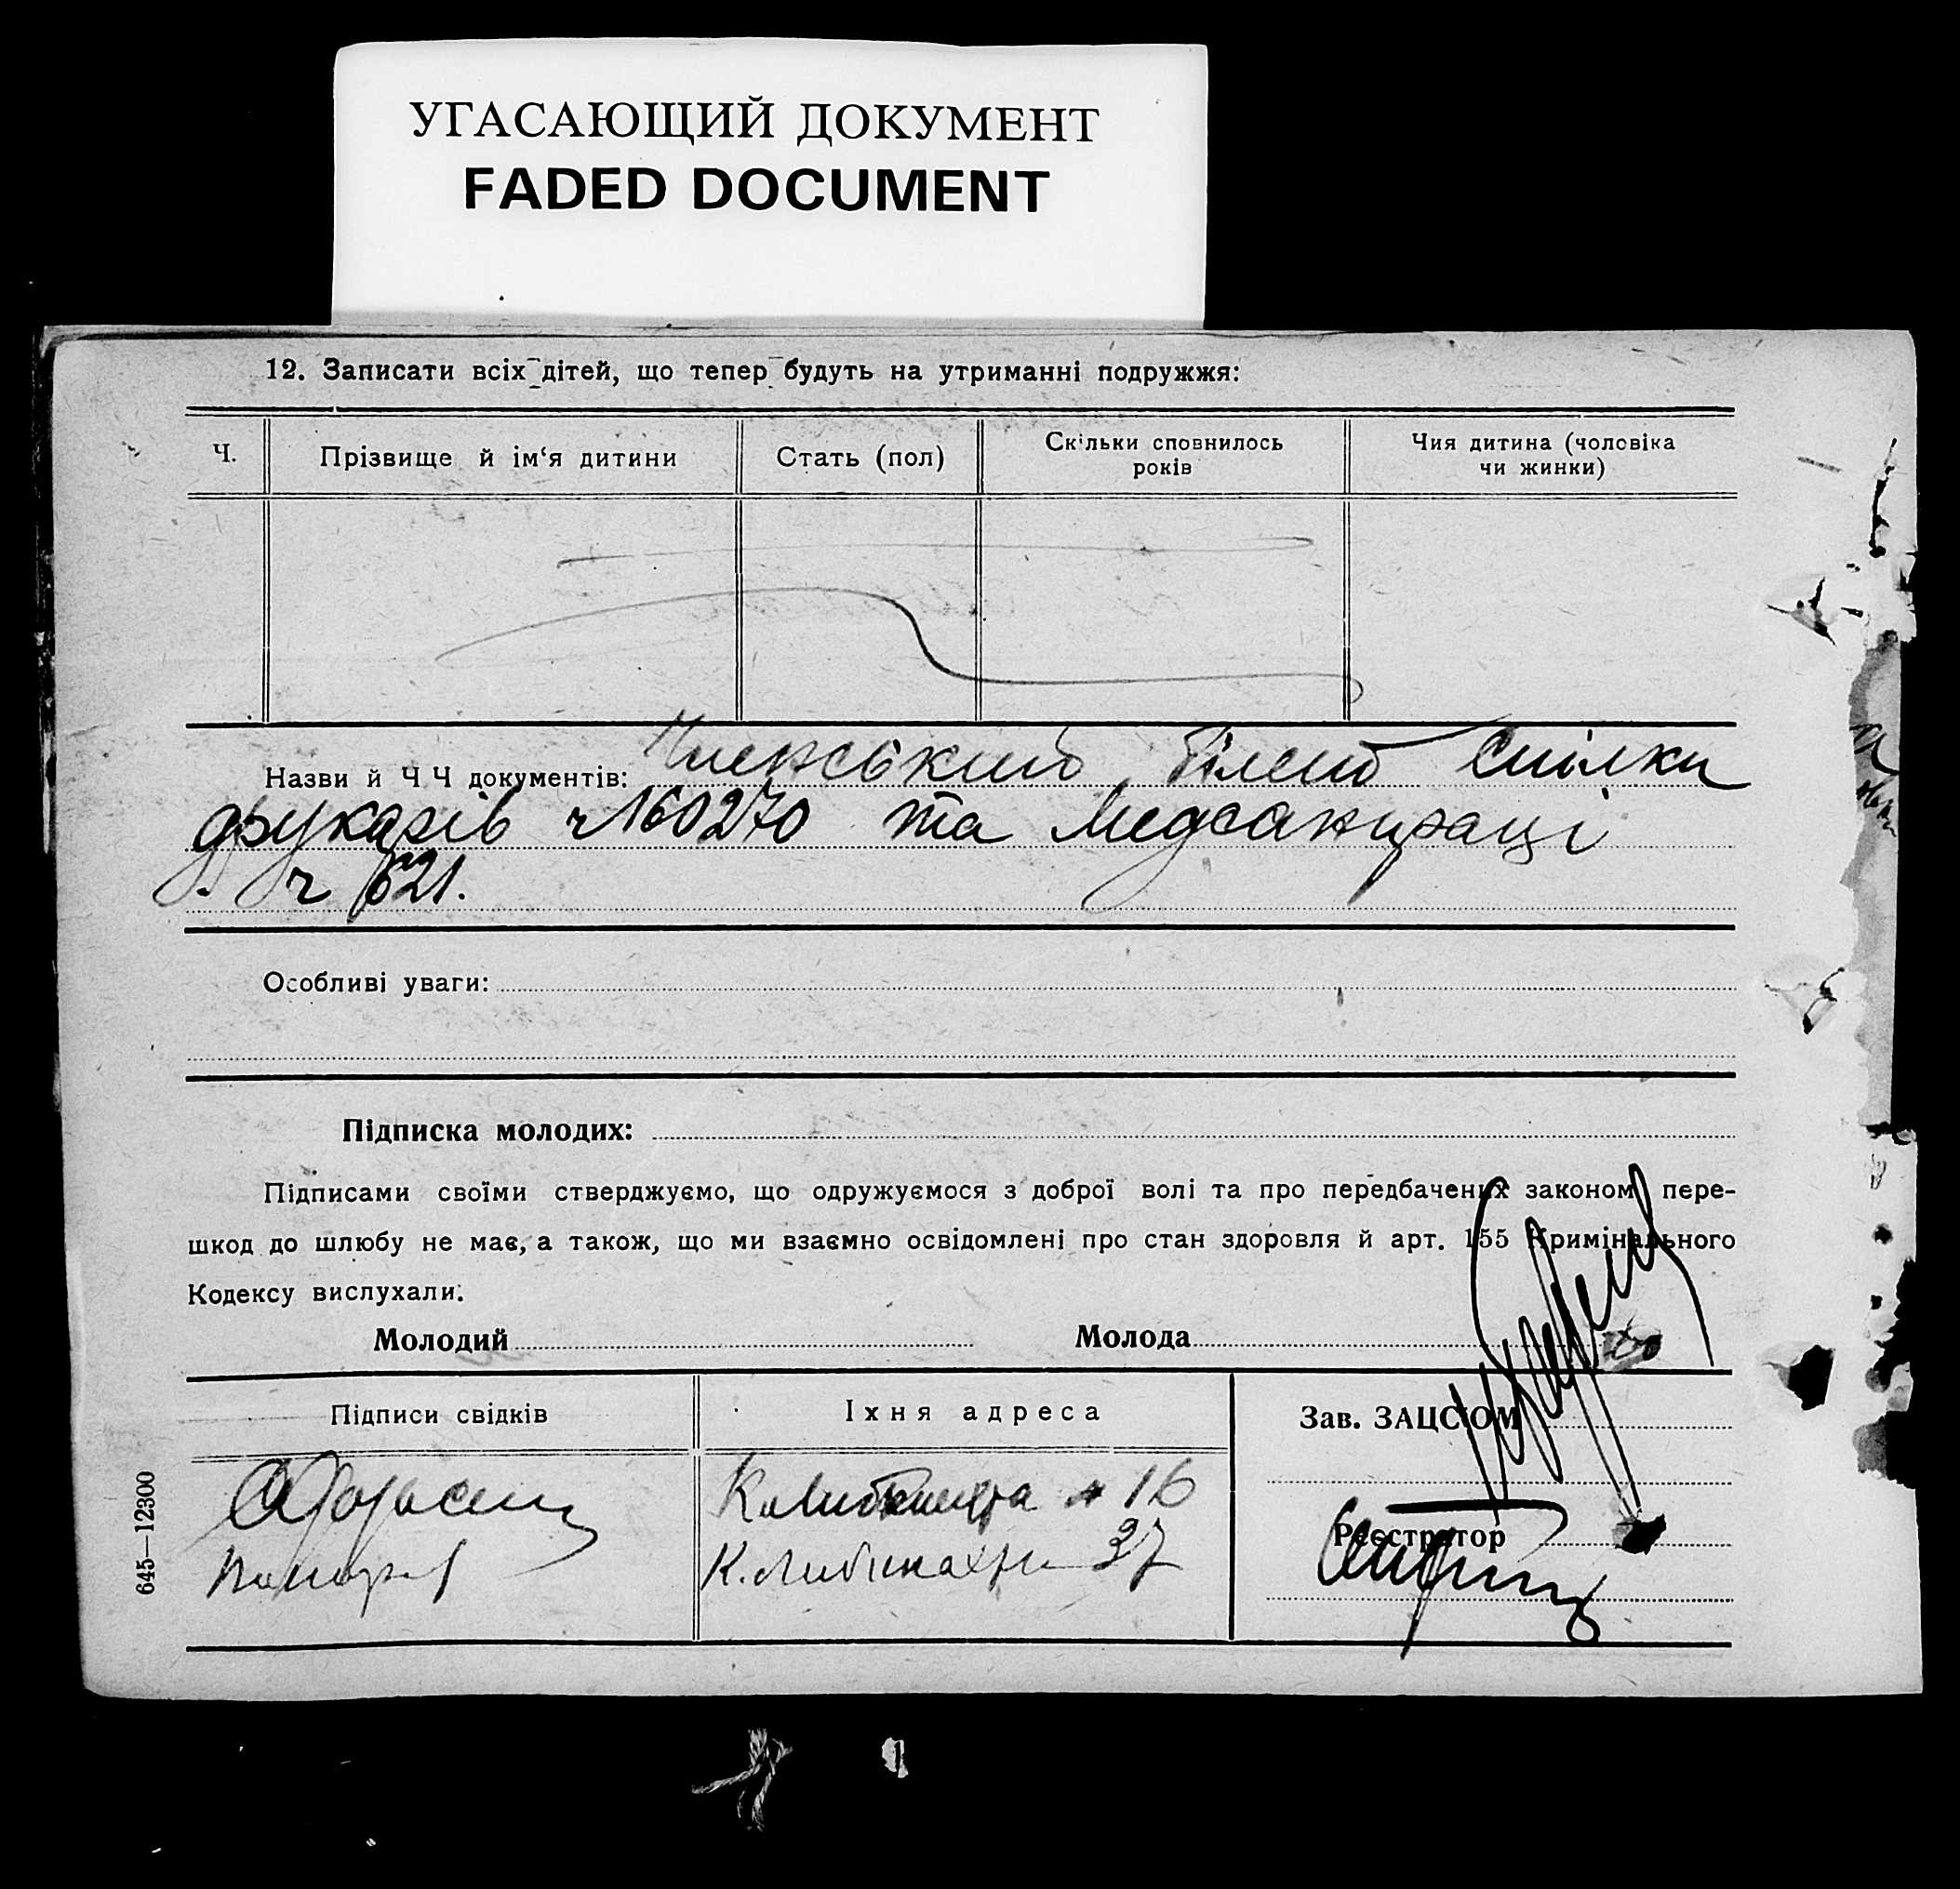 УГАСАЮЩИЙ ДОКУМЕНТ
FADED DOCUMENT
12. Записати всіх дітей, що тепер будуть на утриманні подружжя:
Ч.
Прізвище й ім‘я дитини
Стать (пол)
Скільки сповнилось
років
Чия дитина (чоловіка
чи жинки)
Назви й Ч Ч документів: Членський білет Спілки
друкарів ч 160270 та Медсанпраці
ч 621.
Особливі уваги:
Підписка молодих:
Підписами своїми стверджуємо, що одружуємося з доброї волі та про передбачених законом пере-
шкод до шлюбу не має, а також, що ми взаємно освідомлені про стан здоровля й арт. 155 Кримінального
Кодексу вислухали.
Молодий
Молода
Підписи свідків
Їхня адреса
Зав. ЗАЦС‘ОМ
К. 16
К. 37
Реєстратор
645—12300